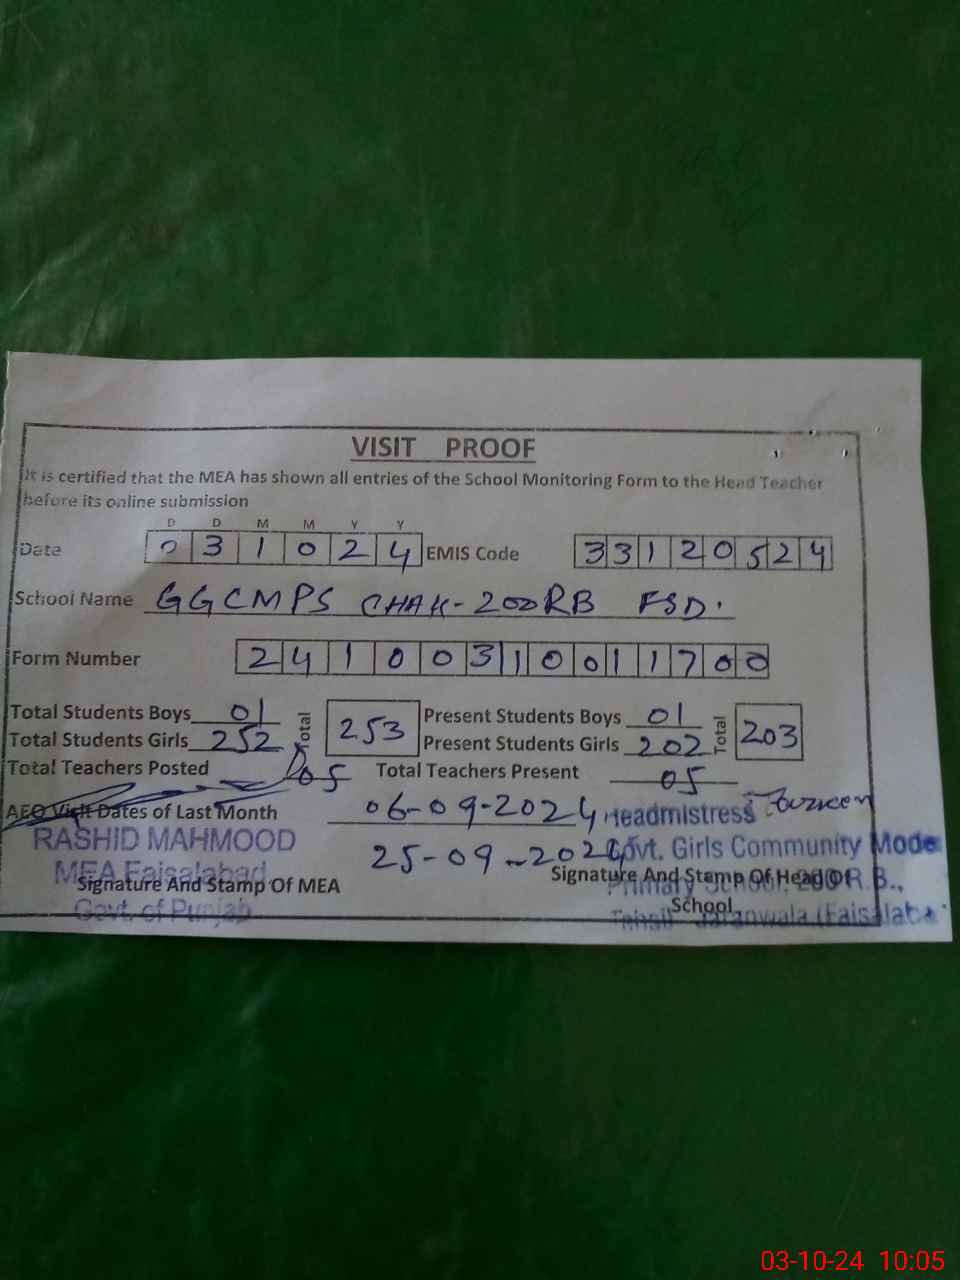 VISIT PROOF
It is certified that the MEA has shown all entries of the School Monitoring Form to the Head Teacher
before its online submission
D D M M Y Y
Date 0 3 1 0 2 4 EMIS Code 3 3 1 2 0 5 2 4
School Name GGCMPS CHAK-200RB FSD.
Form Number 2 4 1 0 0 3 1 0 0 1 1 7 0 0
Total Students Boys 01 Total 253 Present Students Boys 01 Total 203
Total Students Girls 252 Present Students Girls 202
Total Teachers Posted 05 Total Teachers Present 05
AEO Visit Dates of Last Month 06-09-2024 Headmistress
RASHID MAHMOOD 25-09-2024 Govt. Girls Community Mode
MEA Faisalabad Primary School 200 R.B.,
Signature And Stamp Of MEA Signature And Stamp Of Head Of
School
Govt. of Punjab Tehsil Jaranwala (Faisalaba
03-10-24 10:05